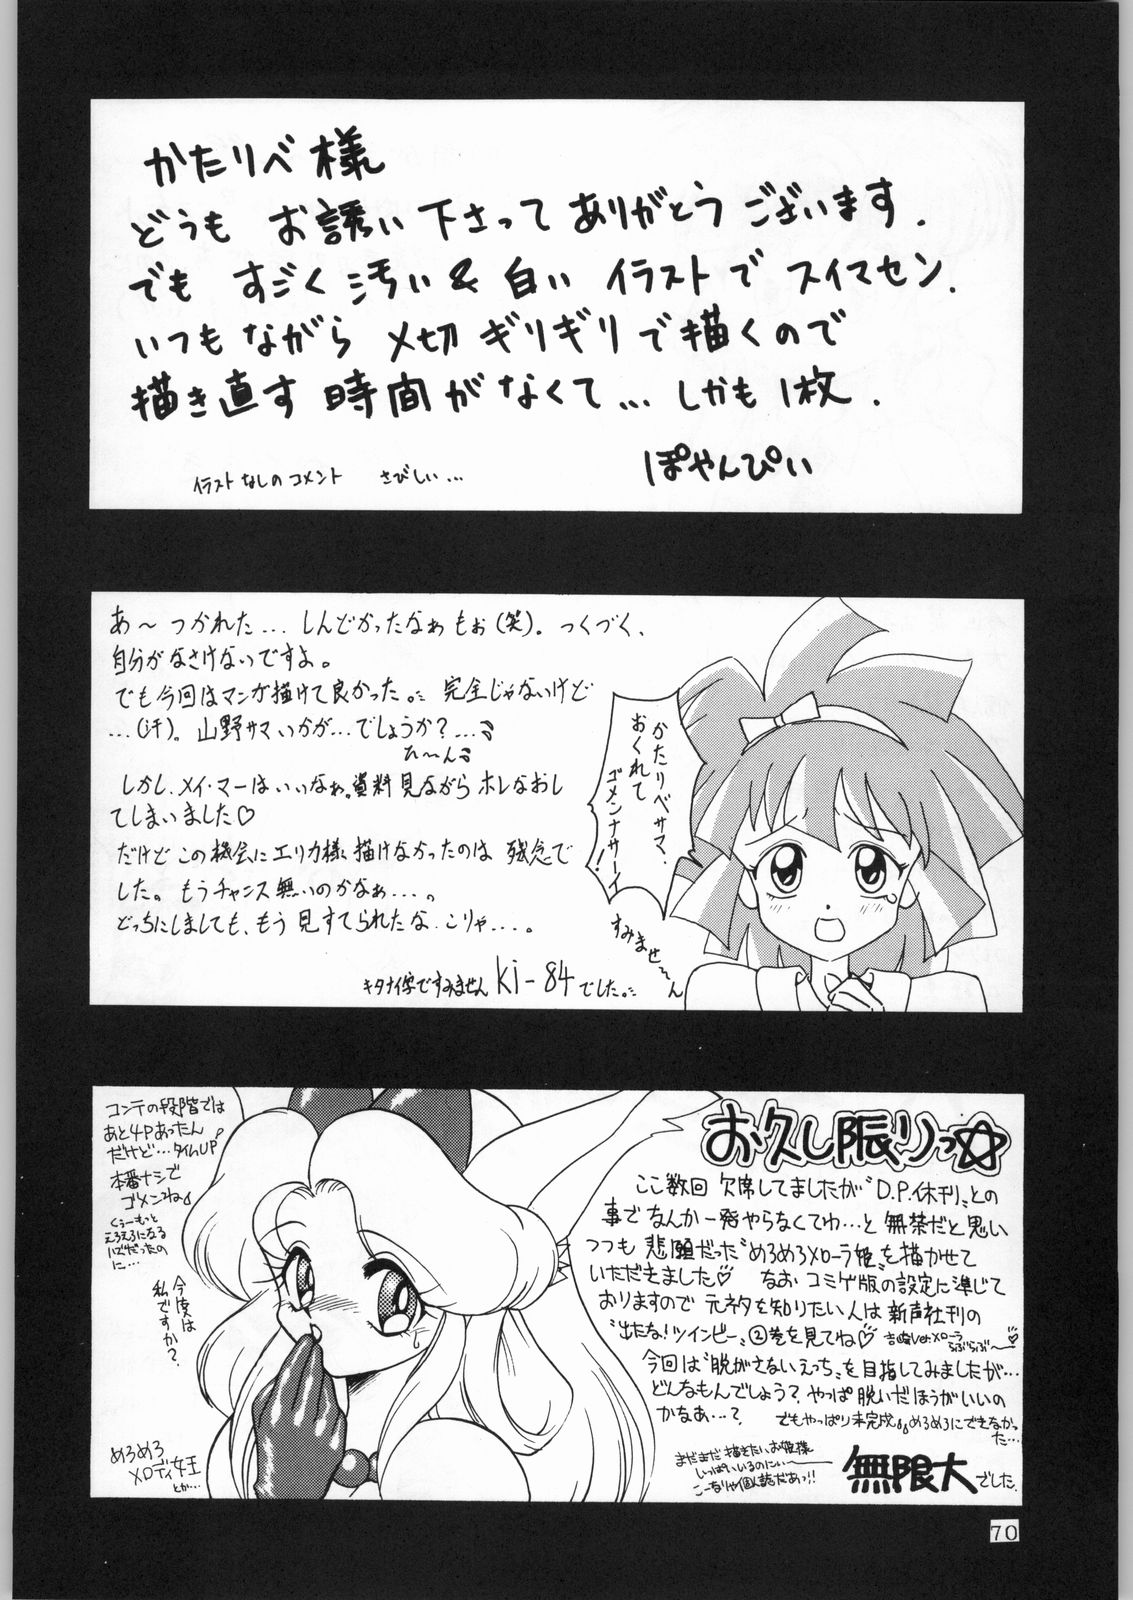 かたリベ様
どうも お誘い下さって ありがとう ございます.
でも すごく 汚い & 白い イラスト で スイマセン.
いつもながら 〆切 ギリギリで描くので
描き直す 時間がなくて… しかも 1枚.
ぽやんぴぃ
イラスト なしの コメント さびしい…
あ〜 つかれた… しんどかったなぁもぉ(笑)。つくづく、
自分がなさけないですよ。
でも今回はマンガ描けて良かった。 完全じゃないけど
…(汗)。山野サマいかが…でしょうか?…
ひ〜ん
しかし、メイ・マーはいいなぁ。資料見ながら ホレなおし
てしまいました♡
だけど この機会に エリカ様 描けなかったのは 残念で
した。もうチャンス無いのかなぁ…。
どっちにしましても、もう見すてられたな こりゃ…。
キタナイ字ですみません ki-84 でした。
かたリベサマ、
おくれて
ゴメンナサーイ!
すみませ〜ん
コンテの段階では
あと4Pあったん
だけど…タイムUP
本番ナシで
ゴメンね
くぅーもっと
えろえろになる
ハズだったの
に…
今度は
私ですか?
めろめろ
メロディ女王
とか…
お久し振りっ☆
ここ数回 欠席してましたが“D.P.休刊”との
事でなんか一発やらなくてわ…と 無茶だと思い
つつも 悲願だった“めろめろメローラ姫”を描かせて
いただきました♡ なお コミゲ版の設定に準じて
おりますので 元ネタを知りたい人は 新声社刊の
“出たな!ツインビー”②巻を見てね♡
らぶらぶ〜
今回は“脱がさないえっち”を目指してみましたが…
どんなもんでしょう? やっぱ 脱いだほうがいいの
かなあ…? でもやっぱり未完成 めろめろにできなかっ
た…
まだまだ 描きたいお姫様
いっぱいいるのにぃ〜
こーなりゃ個人誌だあっ!!
無限大 でした.
70